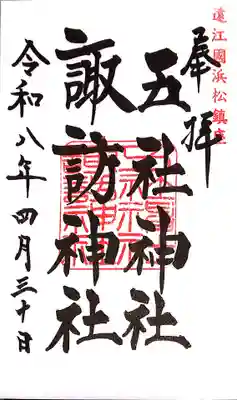 遠江國浜松鎮座
奉拝
五社神社
諏訪神社
令和八年四月三十日